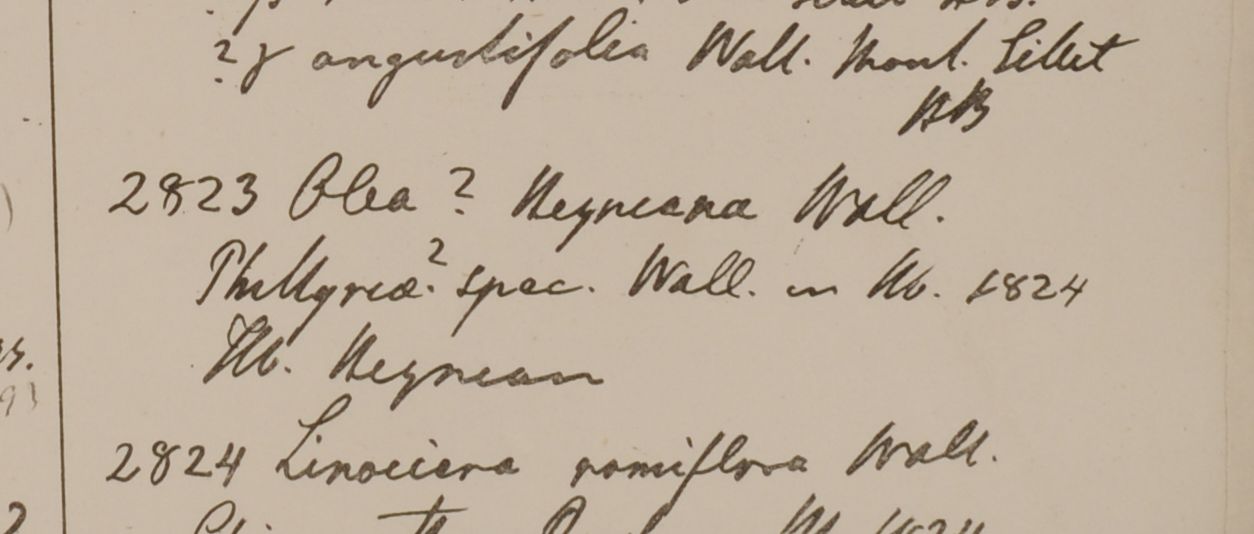 ? γ angustifolia Wall. Mont. Sillet
HB
2823 Olea ? Heyneana Wall.
Phillyreæ? spec. Wall. in Hb. 1824
Hb. Heynean
2824 Linociera ramiflora Wall.
Hb. 1824